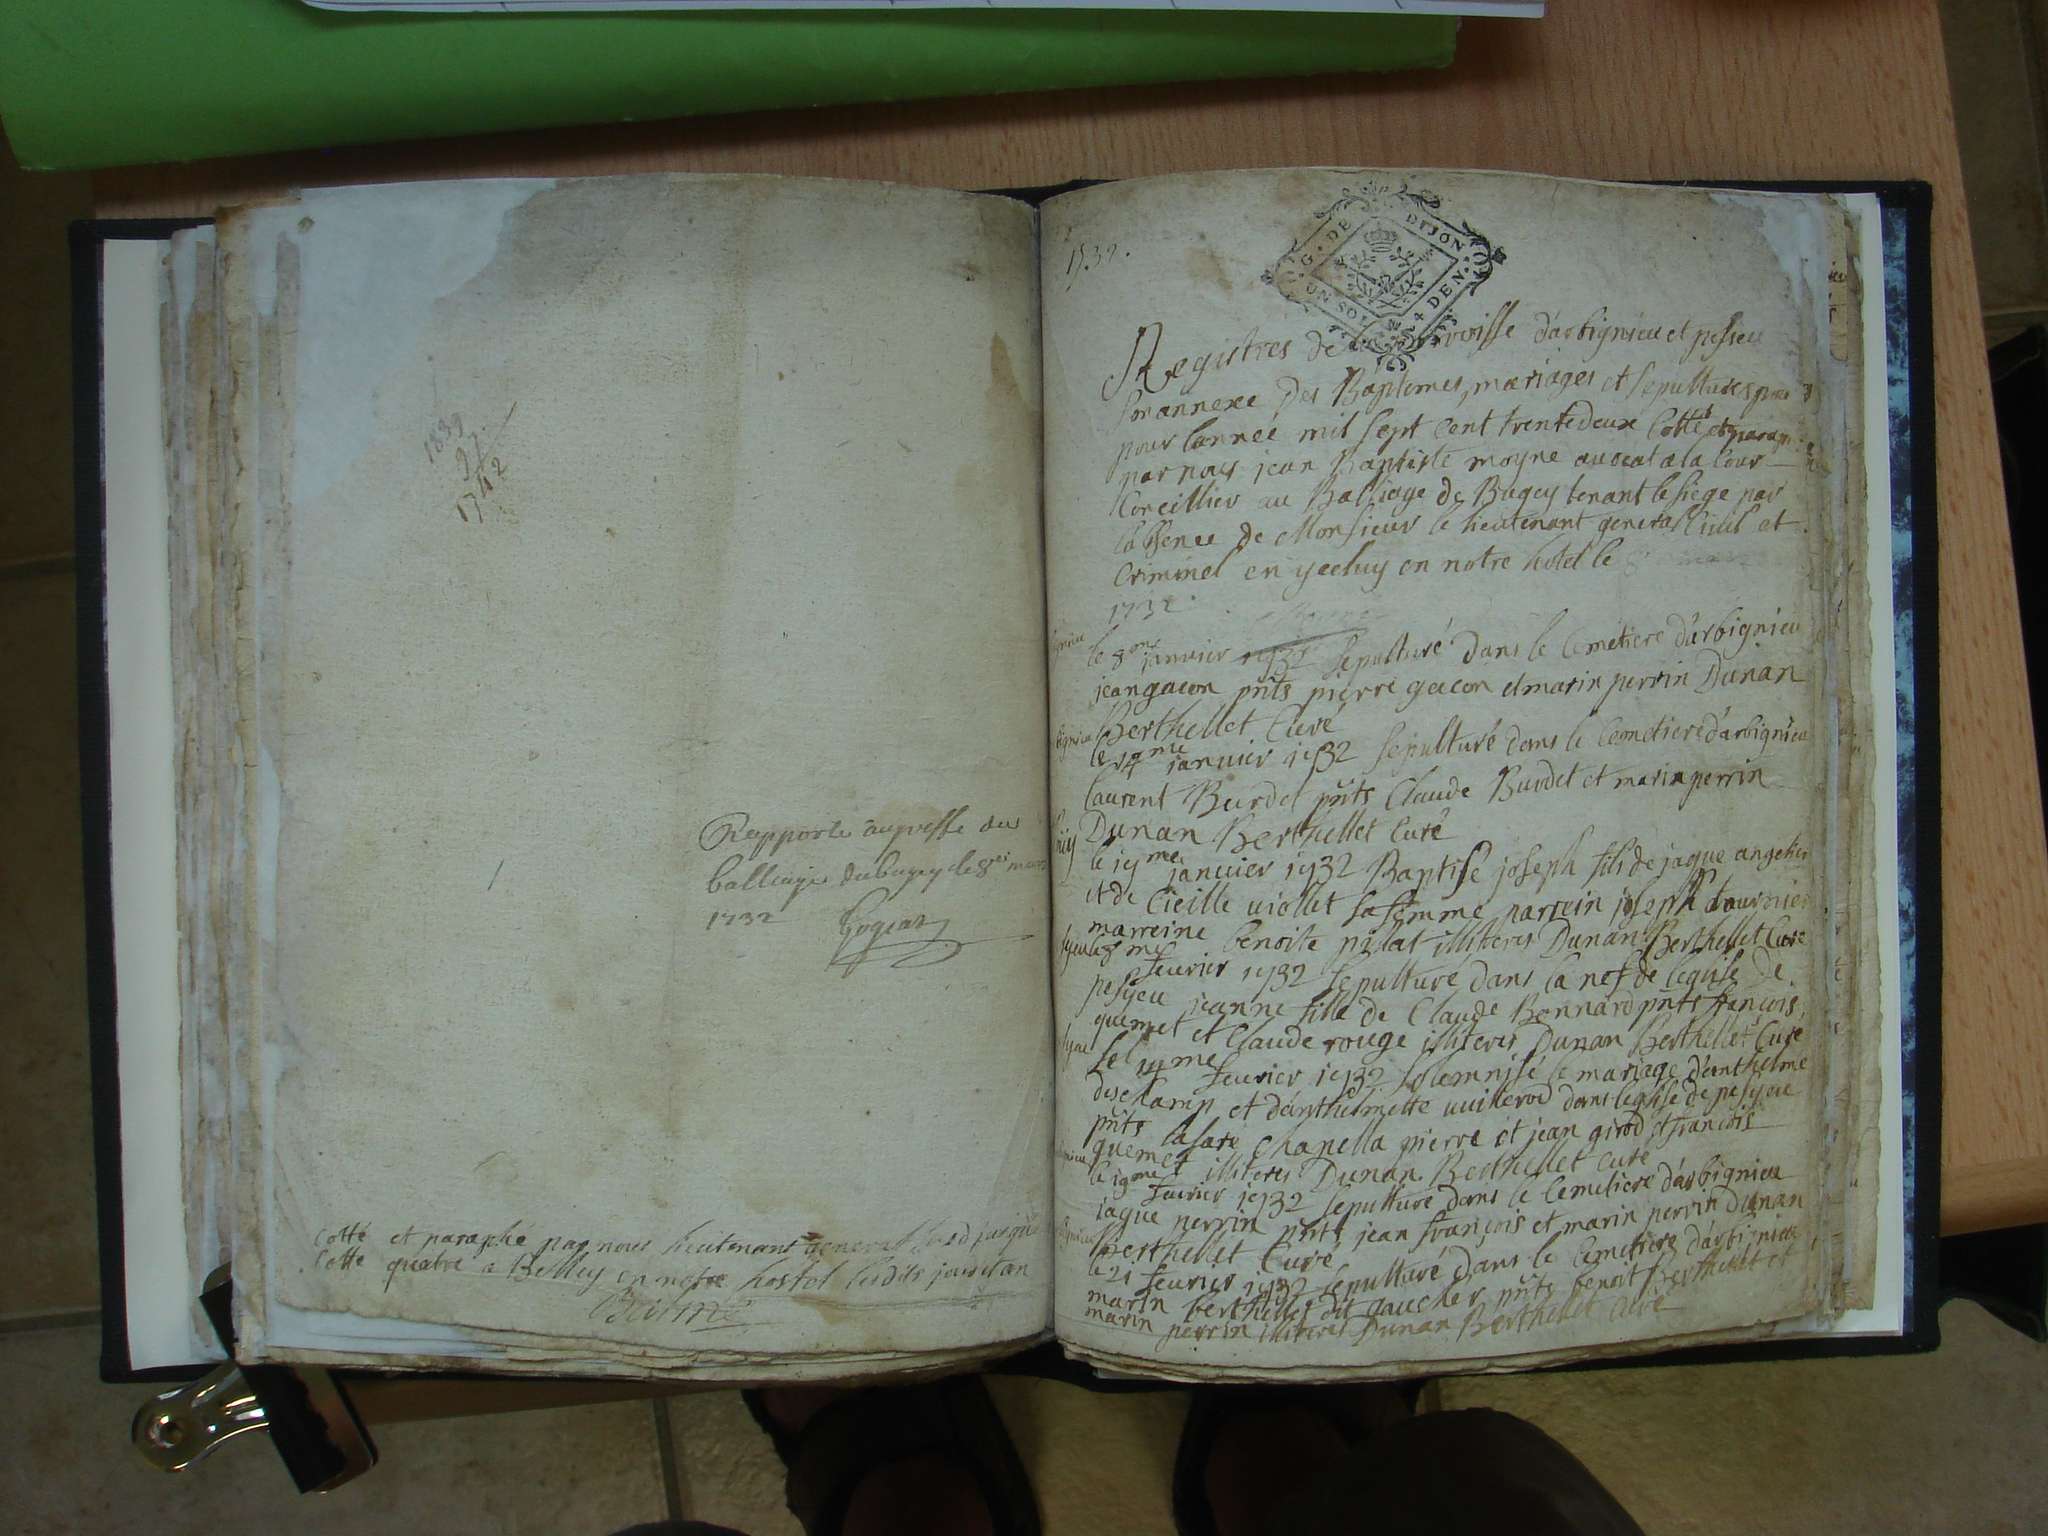 1742
Rapporté au greffe du
balliage du bugey le 8e mars
1732
cotte et paraphé par nous lieutenant general
Cotte quatre a Belley en notre hostel lesdits jour et an
1732.
G. DE DIJON
UN SOL 4 DEN.
Registres de roisse d'arbignieu et pesieu
son annexe Des Baptemes, mariages et sepultures
pour lannee mil sept Cent trente deux Cotté et paraph
par nous jean Baptiste moyne avocat a la Cour
Conceillier au Balliage de Bugey tenant le siege par
labsence de Monsieur le lieutenant general Civil et
Criminel en iceluy en notre hotel le 8
1732
le 8me janvier 1732 sepulturé dans le Cemetiere d'arbignieu
jean gacon pnts pierre gacon et marin perrin Dunan
Berthellet Curé
le 14me janvier 1732 sepulturé dans le Cemetiere d'arbignieu
laurent Burdet pnts Claude Burdet et marin perrin
Dunan Berthellet Curé
le 19me janvier 1732 Baptisé joseph fils de jaque angelier
et de Cicille viollet sa femme parrein joseph tournier
marreine benoite pillat illiteres Dunan Berthellet Curé
fevrier 1732 sepulturé dans la nef de leglise de
pesyeu jeanne fille de Claude Bonnard pnts françois
quemet et Claude rouge illiteres Dunan Berthellet Curé
fevrier 1732 solemnisé le mariage d'anthelme
deschamp et d'anthelmette vuillerod dans leglise de pesyeu
pnts lasare Chapella pierre et jean girod et françois
quemet illiteres Dunan Berthellet Curé
le 19me fevrier 1732 sepulturé dans le Cemetiere d'arbignieu
jaque perrin pnts jean françois et marin perrin Dunan
Berthellet Curé
le 21 fevrier 1732 sepulturé dans le Cemetiere d'arbignieu
marin berthellet dit gaucher pnts benoit Berthellet et
marin perrin illiteres Dunan Berthellet Curé